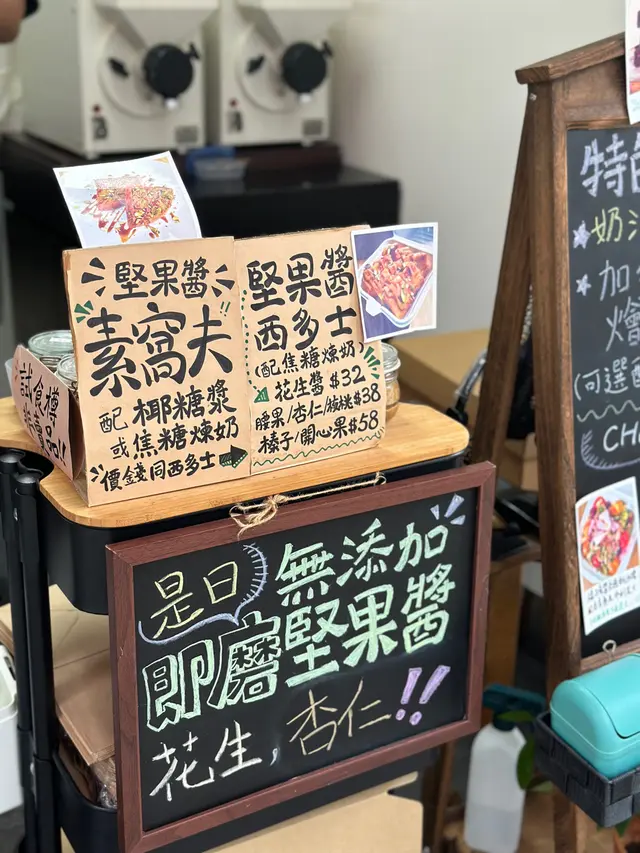 堅果醬
素窩夫
配 椰糖漿
或焦糖煉奶
價錢同西多士
堅果醬
西多士
(配焦糖煉奶)
花生醬 $32
腰果/杏仁/核桃$38
榛子/開心果$58
試食樽
是日
無添加
即磨堅果醬
花生, 杏仁!!
特
奶
加
燴
(可選
CH